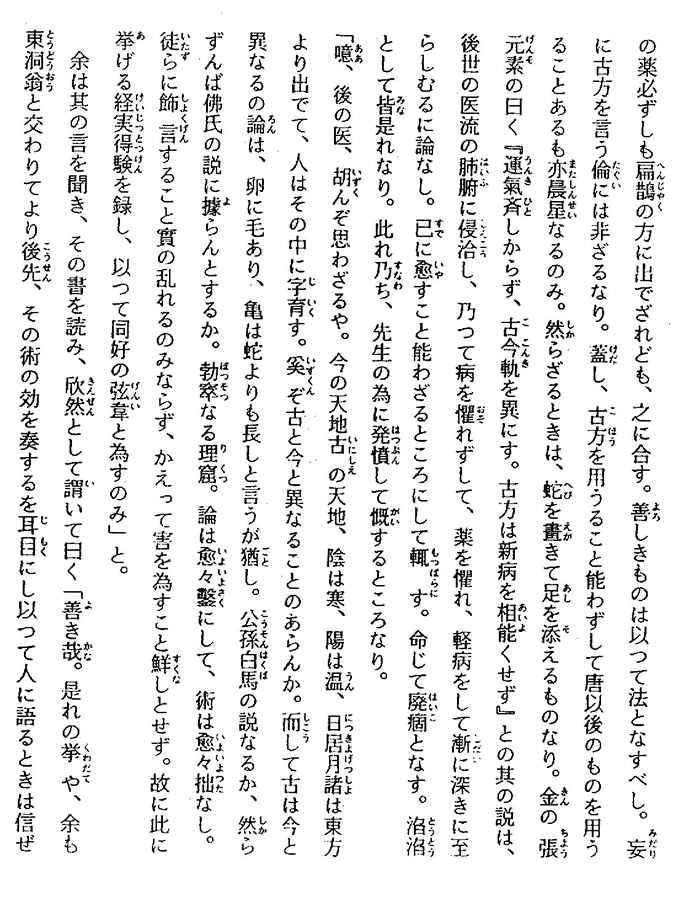 の薬必ずしも扁鵲の方に出でざれども、之に合す。善しきものは以つて法となすべし。妄
に古方を言う倫には非ざるなり。蓋し、古方を用うること能わずして唐以後のものを用う
ることあるも亦晨星なるのみ。然らざるときは、蛇を畫きて足を添えるものなり。金の張
元素の曰く『運氣斉しからず、古今軌を異にす。古方は新病を相能くせず』との其の説は、
後世の医流の肺腑に侵洽し、乃つて病を懼れずして、薬を懼れ、軽病をして漸に深きに至
らしむるに論なし。已に愈すこと能わざるところにして輒す。命じて廃痼となす。滔滔
として皆是れなり。此れ乃ち、先生の為に発憤して慨するところなり。
「噫、後の医、胡んぞ思わざるや。今の天地古の天地、陰は寒、陽は温、日居月諸は東方
より出でて、人はその中に字育す。奚ぞ古と今と異なることのあらんか。而して古は今と
異なるの論は、卵に毛あり、亀は蛇よりも長しと言うが猶し。公孫白馬の説なるか、然ら
ずんば佛氏の説に據らんとするか。勃窣なる理窟。論は愈々鑿にして、術は愈々拙なし。
徒らに飾言すること實の乱れるのみならず、かえって害を為すこと鮮しとせず。故に此に
挙げる経実得験を録し、以つて同好の弦韋と為すのみ」と。
余は其の言を聞き、その書を読み、欣然として謂いて曰く「善き哉。是れの挙や、余も
東洞翁と交わりてより後先、その術の効を奏するを耳目にし以つて人に語るときは信ぜ